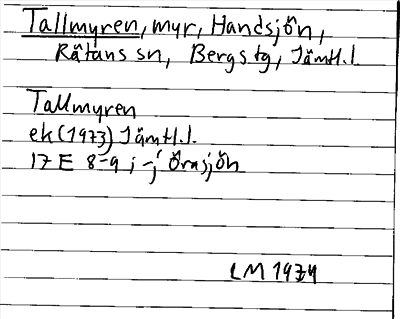 Tallmyren, myr, Handsjön,
Rätans sn, Bergs tg, Jämtl.l.
Tallmyren
ek (1973) Jämtl.l.
17 E 8-9 i-j Örasjön
LM 1974